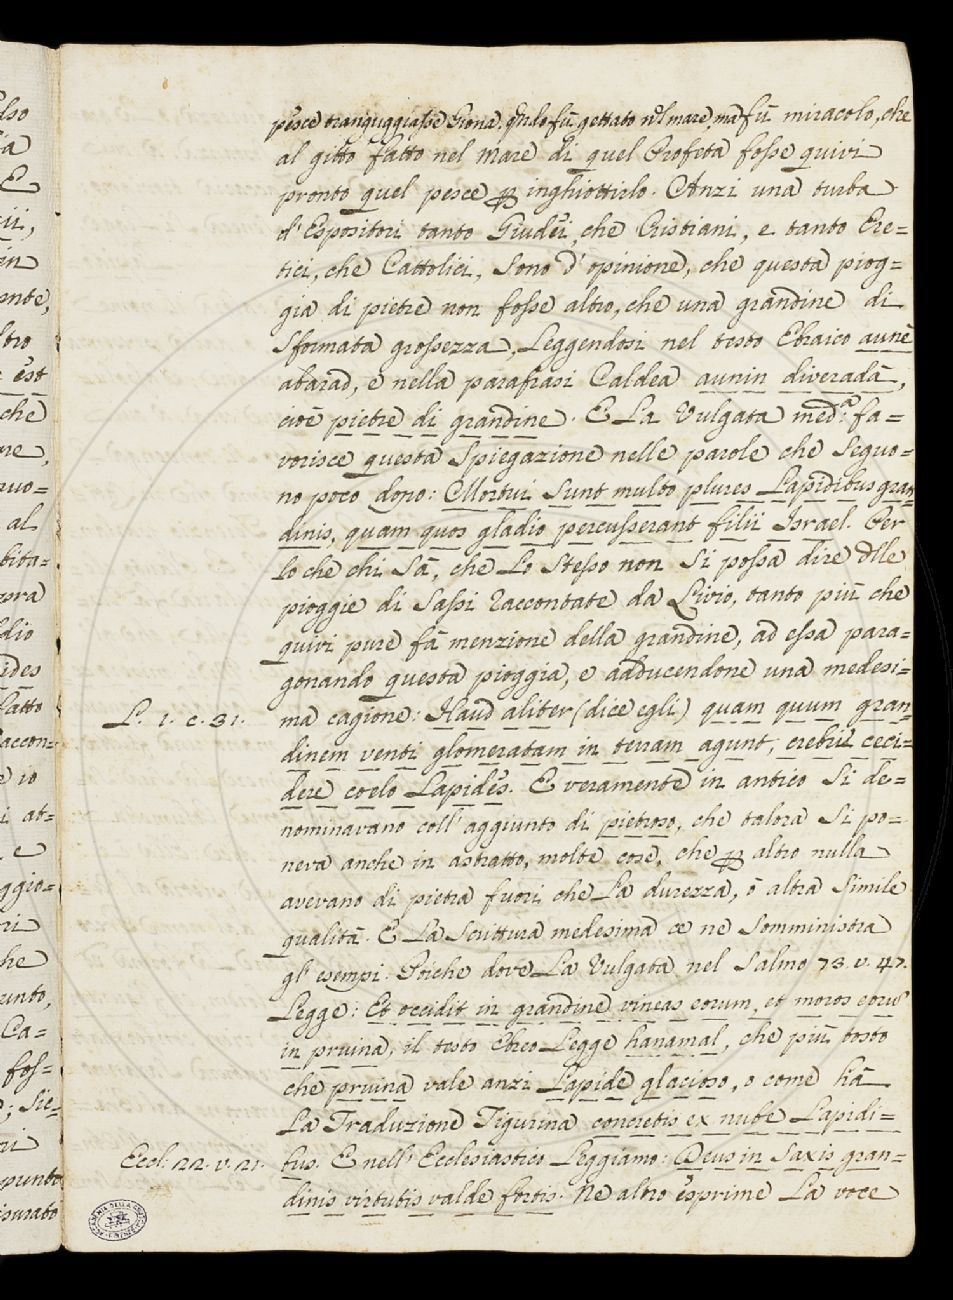 pesce tranguggiasse Giona, qñdo fù gettato nel mare, ma fù miracolo, che
al gitto fatto nel Mare di quel Profeta fosse quivi
pronto quel pesce ꝑ inghiottirlo. Anzi una turba
d'Espositori tanto Giudei, che Cristiani, e tanto Ere=
tici, che Cattolici, sono d'opinione, che questa piog=
gia di pietre non fosse altro, che una grandine di
sformata grossezza, leggendosi nel testo Ebraico aunè
abarad, e nella parafrasi Caldea aunin diveradà,
cioè pietre di grandine. E la Vulgata med.ª fa=
vorisce questa spiegazione nelle parole che seguo=
no poco dopo: Mortui sunt multo plures lapidibus gran
dinis, quam quos gladio percusserant filii Israel. Per
lo che chi sà, che lo stesso non si possa dire dlle
pioggie di sassi raccontate da Livio, tanto più che
quivi pure fà menzione della grandine, ad essa para=
gonando questa pioggia, e adducendone una medesi=
L. 1. c. 31. ma cagione: Haud aliter (dice egli) quam quum gran
dinem venti glomeratam in terram agunt, crebri ceci=
dere coelo lapides. E veramente in antico si de=
nominavano coll'aggiunto di pietroso, che talora si po=
neva anche in astratto, molte cose, che ꝑ altro nulla
averano di pietra fuori che la durezza, ò altra simile
qualità. E la Scrittura medesima ce ne somministra
gl'esempi. Poiche dove la Vulgata nel Salmo 73. v. 47.
legge: Et occidit in grandine vineas eorum, et moros eorū
in pruina, il testo Ebreo legge hanamal, che più tosto
che pruina vale anzi lapide glacioso, o come hà
la Traduzione Tigurina concretis ex nube lapidi=
Eccl. 22. v. 21. bus. E nell'Ecclesiastico leggiamo: Deus in saxis gran=
dinis virtutis valde fortis. Ne altro esprime la voce